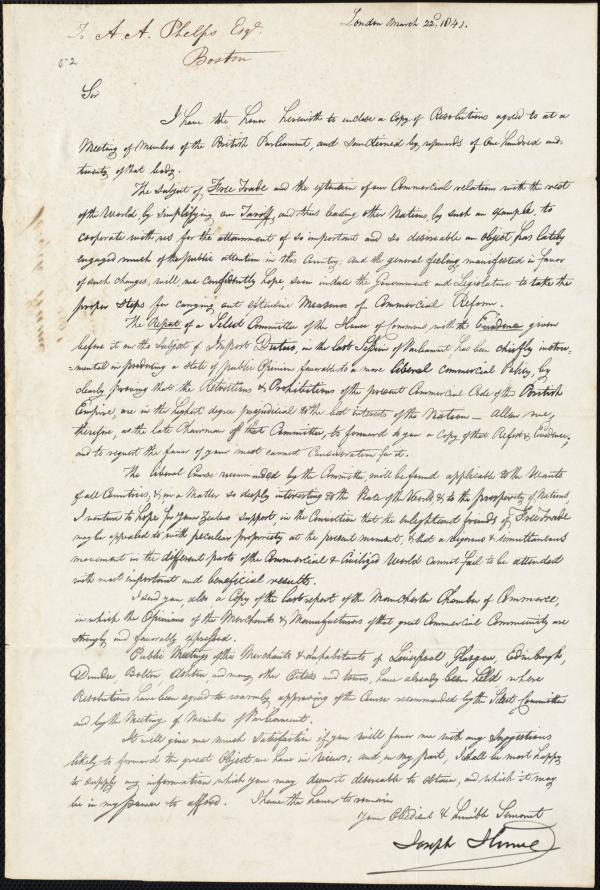 To A A. Phelps Esqr.
Boston
London March 22d, 1841.
52
Sir
I have the honor herewith to enclose a Copy of Resolutions agreed to at a
Meeting of Members of the British Parliament, and sanctioned by, upwards of One hundred and
twenty of that body.
The subject of Free Trade and the extension of our Commercial relations with the rest
of the World by simplifying our Tariff, and thus leading other Nations, by such an example, to
cooperate with us for the attainment of so important and so desireable an object has lately
engaged much of the public attention in this Country; And the general feeling manifested in favor
of such changes, will, we confidently hope, soon induce the Government and Legislature to take the
proper steps for carrying out extensive Measures of Commercial Reform.
The Report of a Select Committee of the House of Commons, with the Evidence given
before it on the subject of Import Duties, in the last Session of Parliament has been chiefly instru-
-mental in producing a state of public Opinion favorable to a more liberal commercial Policy, by
clearly proving that the Restrictions & Prohibitions of the present Commercial Code of the British
Empire, are in the highest degree prejudicial to the best interests of the Nation — Allow me,
therefore, as the late Chairman of that Committee, to forward to you a Copy of that Report & Evidence,
and to request the favor of your most earnest Consideration for it.
The liberal Course recommended by the Committee, will be found applicable to the Wants
of all Countries, & on a Matter so deeply interesting to the Peace of the World & to the prosperity of Nations,
I venture to hope for Your Zealous support, in the Conviction that the enlightened friends of Free Trade
may be appealed to with peculiar propriety at the present moment, & that a vigorous & simultaneous
movement in the different parts of the Commercial & Civilized World cannot fail to be attended
with most important and beneficial results.
I send you also a Copy of the last report of the Manchester Chamber of Commerce,
in which the Opinions of the Merchants & Manufacturers of that great Commercial Community are
strongly and favorably expressed.
Public Meetings of the Merchants & Inhabitants of Liverpool, Glasgow, Edinburgh,
Dundee, Bolton, Ashton and many other Cities and towns, have already been held where
Resolutions have been agreed to warmly approving of the Course recommended by the Select Committee
and by the Meeting of Members of Parliament.
It will give me much Satisfaction if you will favor me with any Suggestions
likely to forward the great Object we have in view; and, on my part, I shall be most happy
to supply any information which you may deem it desireable to obtain, and which it may
be in my power to afford. I have the honor to remain
Your Obedient & humble Servant
Joseph Hume